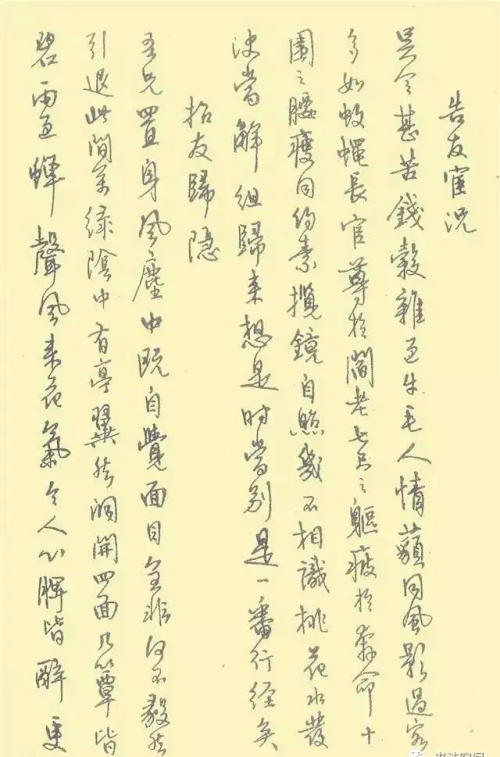 告友宦況
吳令甚苦錢穀雜過牛毛人情同風影過客
多如蚊蠅長官尊於閻老七尺之軀疲於奔命十
圍之腰瘦同約素攬鏡自照幾不相識桃花水發
決當解組歸來想是時當別是一番行徑矣
招友歸隱
吾兄置身風塵中既自覺面目全非何不毅然
引退此間萬綠陰中有亭翼然洞開四面几簟皆
碧雨過蟬聲風來花氣令人心脾皆醉更